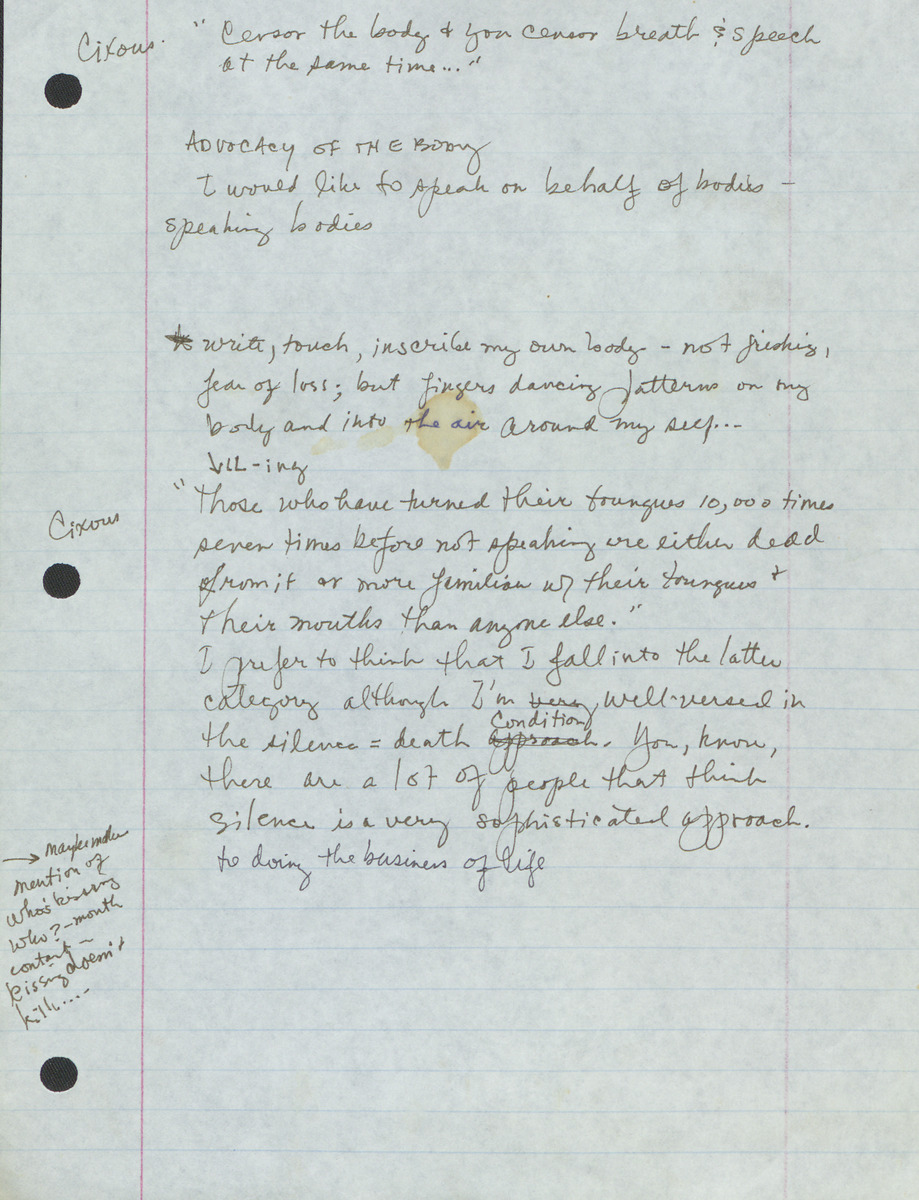 Cixous. "Censor the body & you censor breath & speech
at the same time..."
ADVOCACY OF THE BODY
I would like to speak on behalf of bodies -
speaking bodies
write, touch, inscribe my own body - not
fear of loss; but fingers dancing patterns on my
body and into the air around my self...
-ing
Cixous
"Those who have turned their toungues 10,000 times
seven times before not speaking are either dead
from it or more familiar w/ their toungues &
their mouths than anyone else."
I prefer to think that I fall into the latter
category although I'm very, well-versed in
the silence = death approach. Condition You, know,
there are a lot of people that think
silence is a very sophisticated approach.
to doing the business of life
→ maybe make
mention of
who's kissing
who? - mouth
contact -
kissing doesn't
kill....-